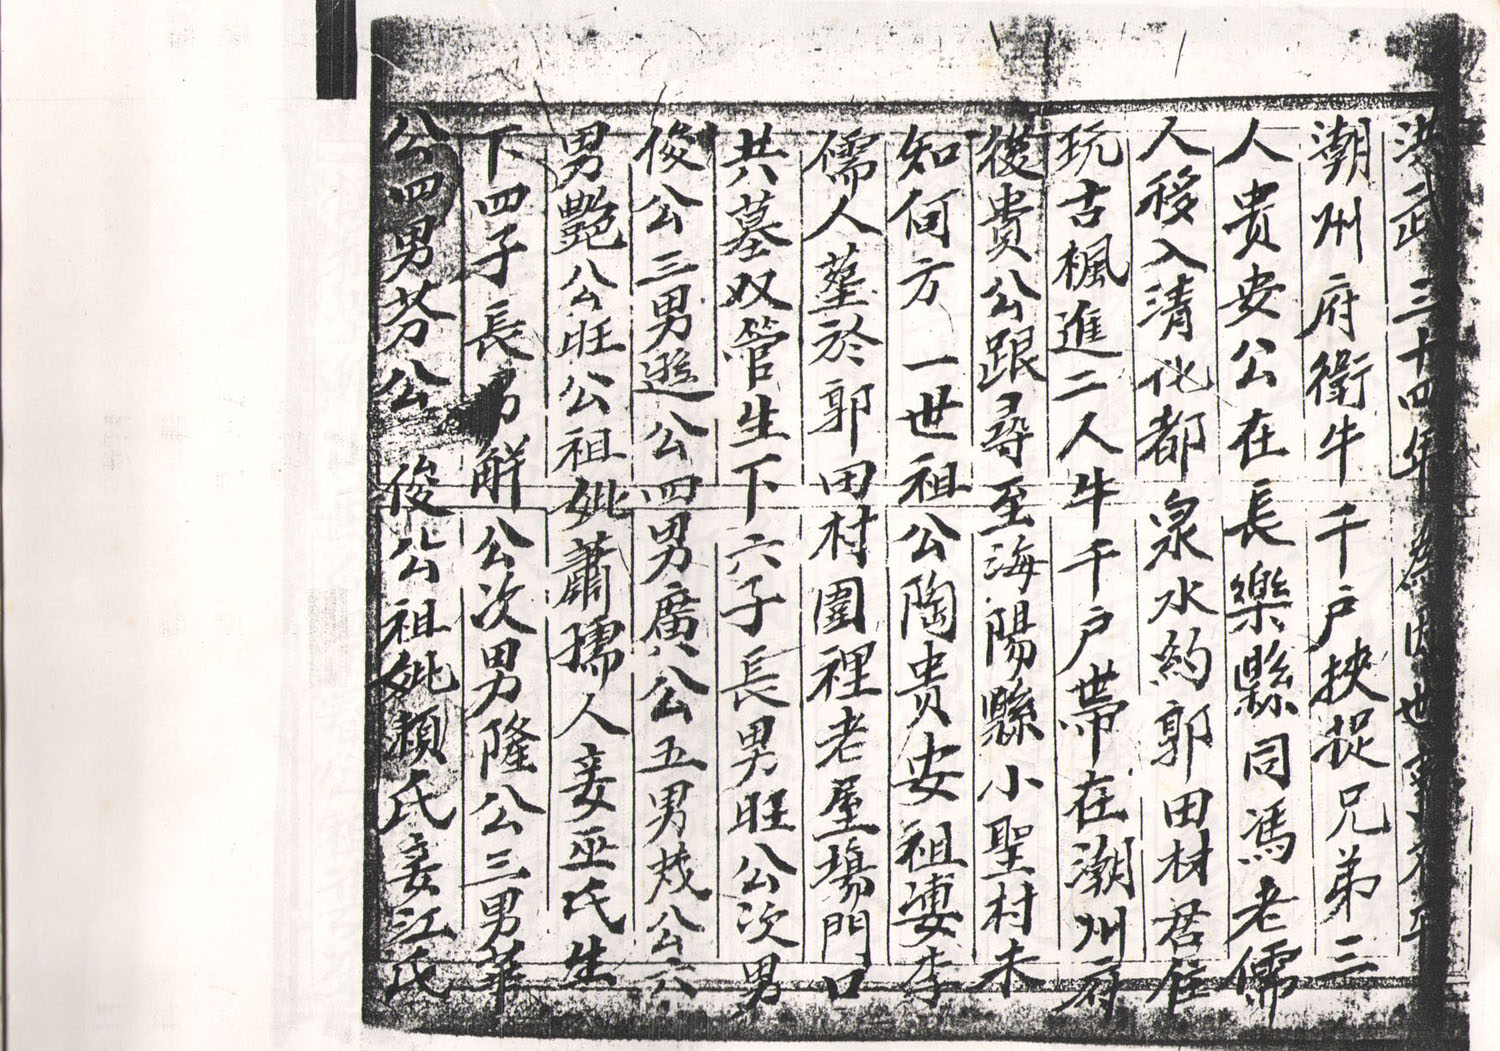 洪武三十四年為因世
潮州府衛牛千戶挾捉兄弟三
人貴安公在長樂縣同馮老儒
人移入清化都泉水約郭田材君住
玩古楓進二人牛千戶帶在潮州府
後貴公跟尋至海陽縣小聖村未
知何方一世祖公陶贵安祖婆李
儒人墓於郭田村圍裡老屋場門口
共墓奴管生下六子長男旺公次男
俊公三男遜公四男廣公五男茂公六
男艷公旺公祖妣蕭孺人妾巫氏生
下四子長男解公次男隆公三男華
公四男芬公俊公祖妣賴氏妾江氏